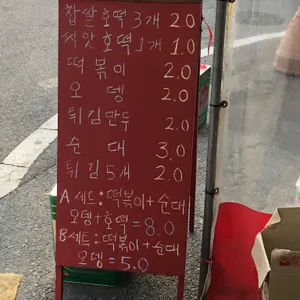 찹쌀호떡3개 2.0
씨앗호떡1개 1.0
떡볶이 2.0
오뎅 2.0
튀김만두 2.0
순대 3.0
튀김5개 2.0
A세트:떡볶이+순대
오뎅+호떡=8.0
B세트:떡볶이+순대
오뎅=5.0